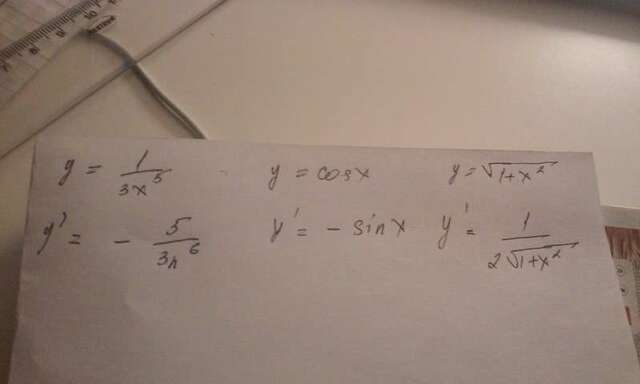 y = 1/(3x^5) y = cosx y = √(1+x^2)
y' = - 5/(3x^6) y' = - sinx y' = 1/(2√(1+x^2))